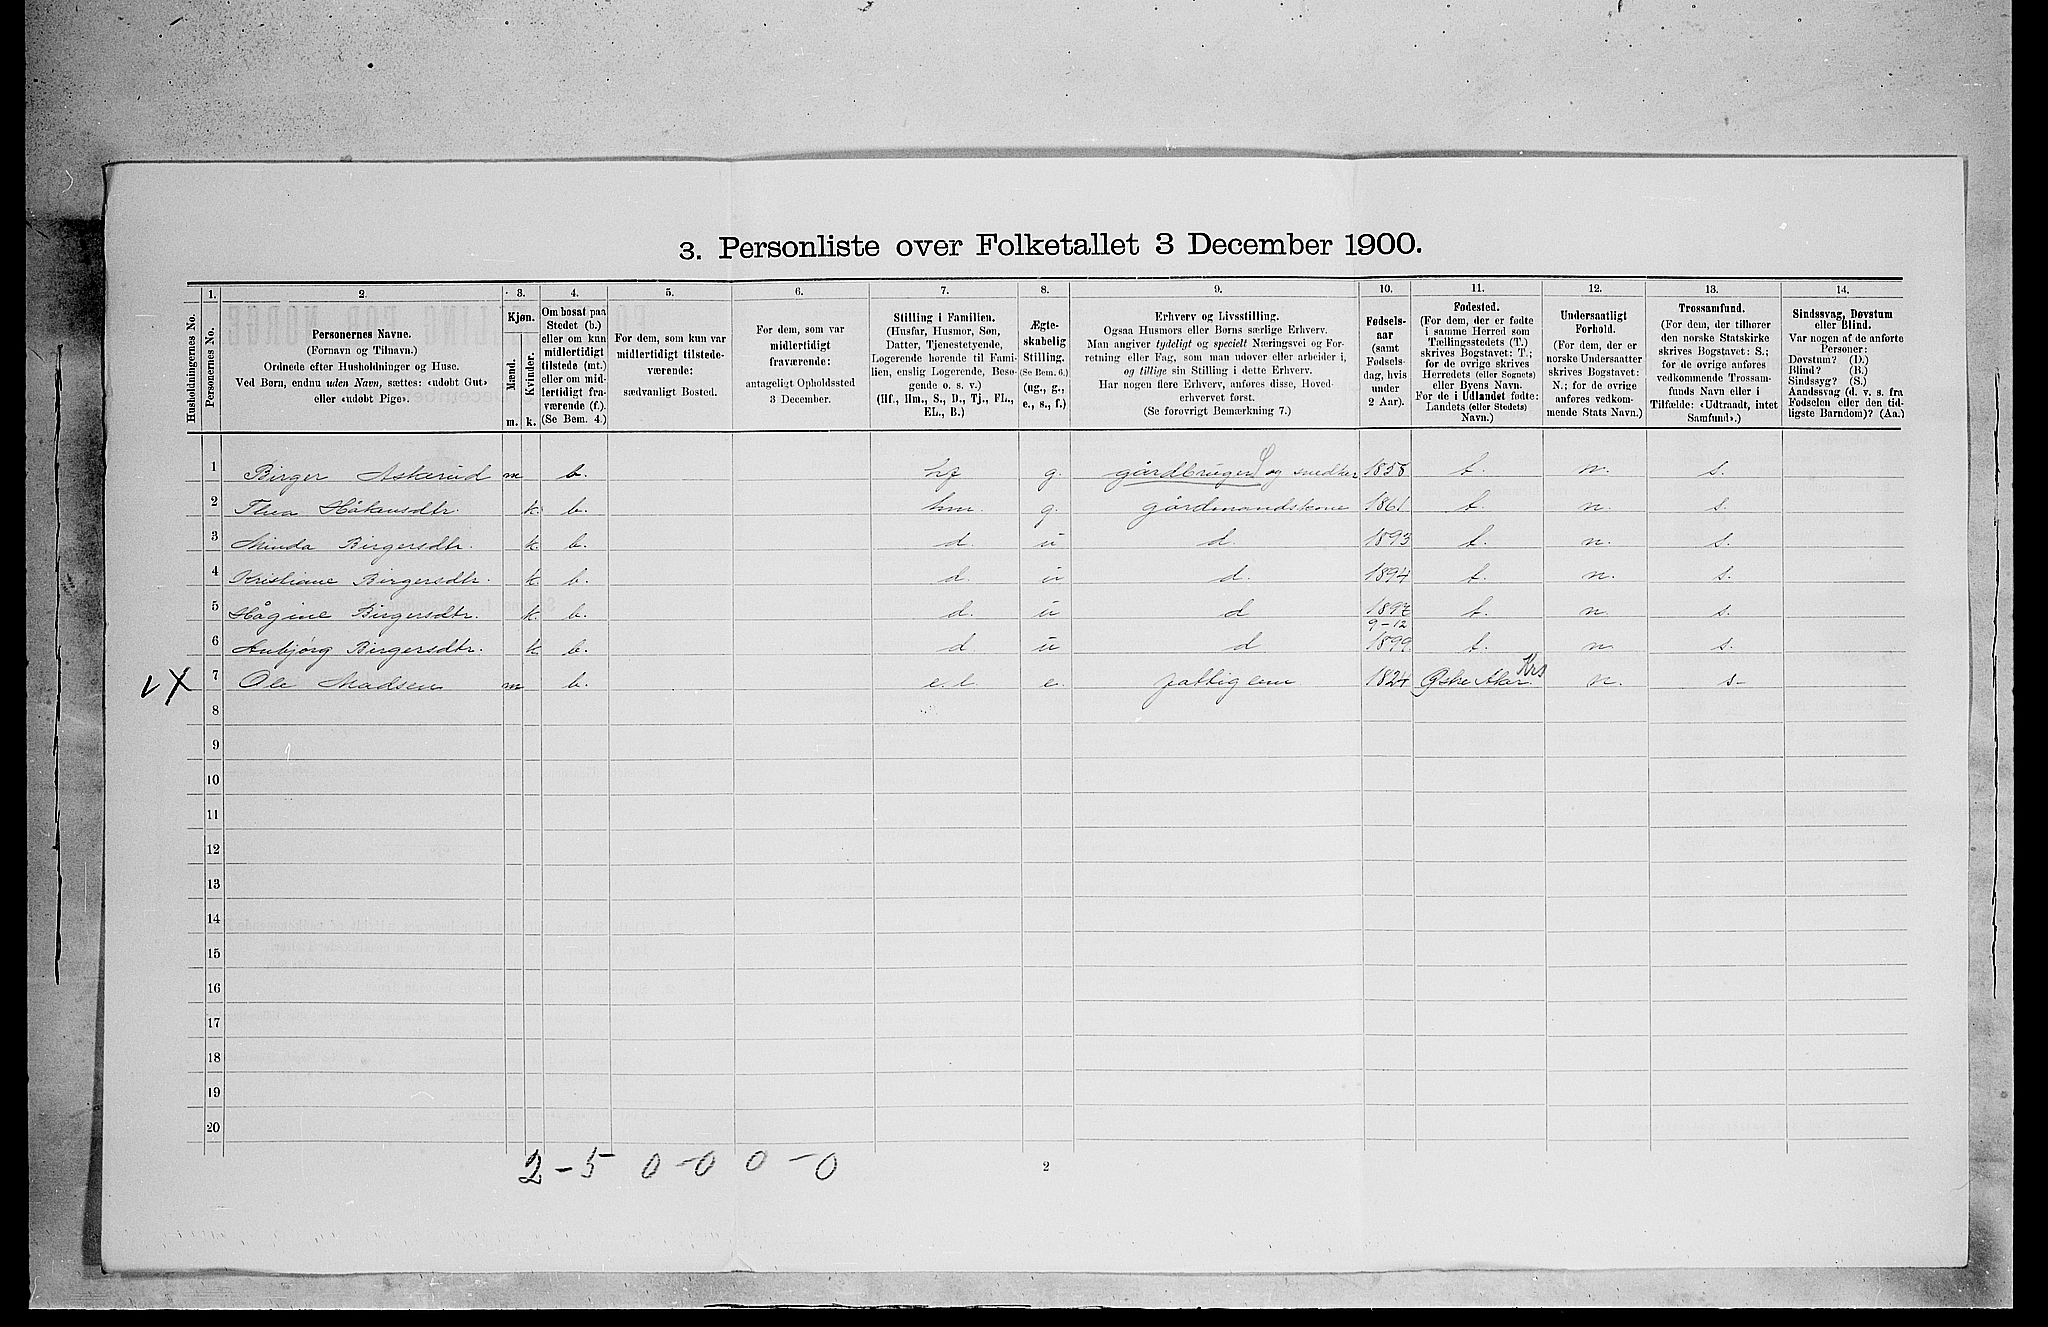 3. Personliste over Folketallet 3 December 1900.
1. 2. 3. 4. 5. 6. 7. 8. 9. 10. 11. 12. 13. 14.
Husholdningernes No.
Personernes No.
Personernes Navne.
(Fornavn og Tilnavn.)
Ordnede efter Husholdninger og Huse.
Ved Børn, endnu uden Navn, sættes: «udøbt Gut»
eller «udøbt Pige».
Kjøn.
Mænd.
Kvinder.
m. k.
Om bosat paa
Stedet (b.)
eller om kun
midlertidigt
tilstede (mt.)
eller om mid-
lertidigt fra-
værende (f.)
(Se Bem. 4.)
For dem, som kun var
midlertidigt tilstede-
værende:
sædvanligt Bosted.
For dem, som var
midlertidigt
fraværende:
antageligt Opholdssted
3 December.
Stilling i Familien.
(Husfar, Husmor, Søn,
Datter, Tjenestetyende,
Logerende hørende til Fami-
lien, enslig Logerende, Besø-
gende o. s. v.)
(Hf., Hm., S., D., Tj., FL.,
EL., B.)
Ægte-
skabelig
Stilling.
(Se Bem. 6.)
(ug., g.,
e., s., f.)
Erhverv og Livsstilling.
Ogsaa Husmors eller Børns særlige Erhverv.
Man angiver tydeligt og specielt Næringsvei og For-
retning eller Fag, som man udøver eller arbeider i,
og tillige sin Stilling i dette Erhverv.
Har nogen flere Erhverv, anføres disse, Hoved-
erhvervet først.
(Se forøvrigt Bemærkning 7.)
Fødsels-
aar
(samt
Fødsels-
dag, hvis
under
2 Aar).
Fødested.
(For dem, der er fødte
i samme Herred som
Tællingsstedets (T.)
skrives Bogstavet: T.;
for de øvrige skrives
Herredets (eller Sognets)
eller Byens Navn.
For de i Udlandet fødte:
Landets (eller Stedets)
Navn.)
Undersaatligt
Forhold.
(For dem, der er
norske Undersaatter
skrives Bogstavet:
N.; for de øvrige
anføres vedkom-
mende Stats Navn.)
Trossamfund.
(For dem, der tilhører
den norske Statskirke
skrives Bogstavet: S.;
for de øvrige anføres
vedkommende Trossam-
funds Navn eller i
Tilfælde: «Udtraadt, intet
Samfund».)
Sindssvag, Døvstum
eller Blind.
Var nogen af de anførte
Personer:
Døvstum? (D.)
Blind? (B.)
Sindssyg? (S.)
Aandssvag (d. v. s. fra
Fødselen eller den tid-
ligste Barndom)? (Aa.)
1 Birger Askerud m b. hf g. gårdbruger og snedker 1858 t. n. s.
2 Thea Håkensdtr. k. b. hm. g. gårdmandskone 1861 t. n. s.
3 Minda Birgersdtr. k. b. d. u d. 1893 t. n. s.
4 Kristiane Birgersdtr. k b. d. u d. 1894 t. n. s.
5 Hågine Birgersdtr. k. b. d. u d 1897 t. n. s.
6 Anbjørg Birgersdtr. k b. d u d 9-12 1899 t. n. s.
7 Ole Madsen m b. e. l. e. fattiglem 1824 n. s-
8
9
10
11
12
13
14
15
16
17
18
19
20
2-5 0-0 0-0
2